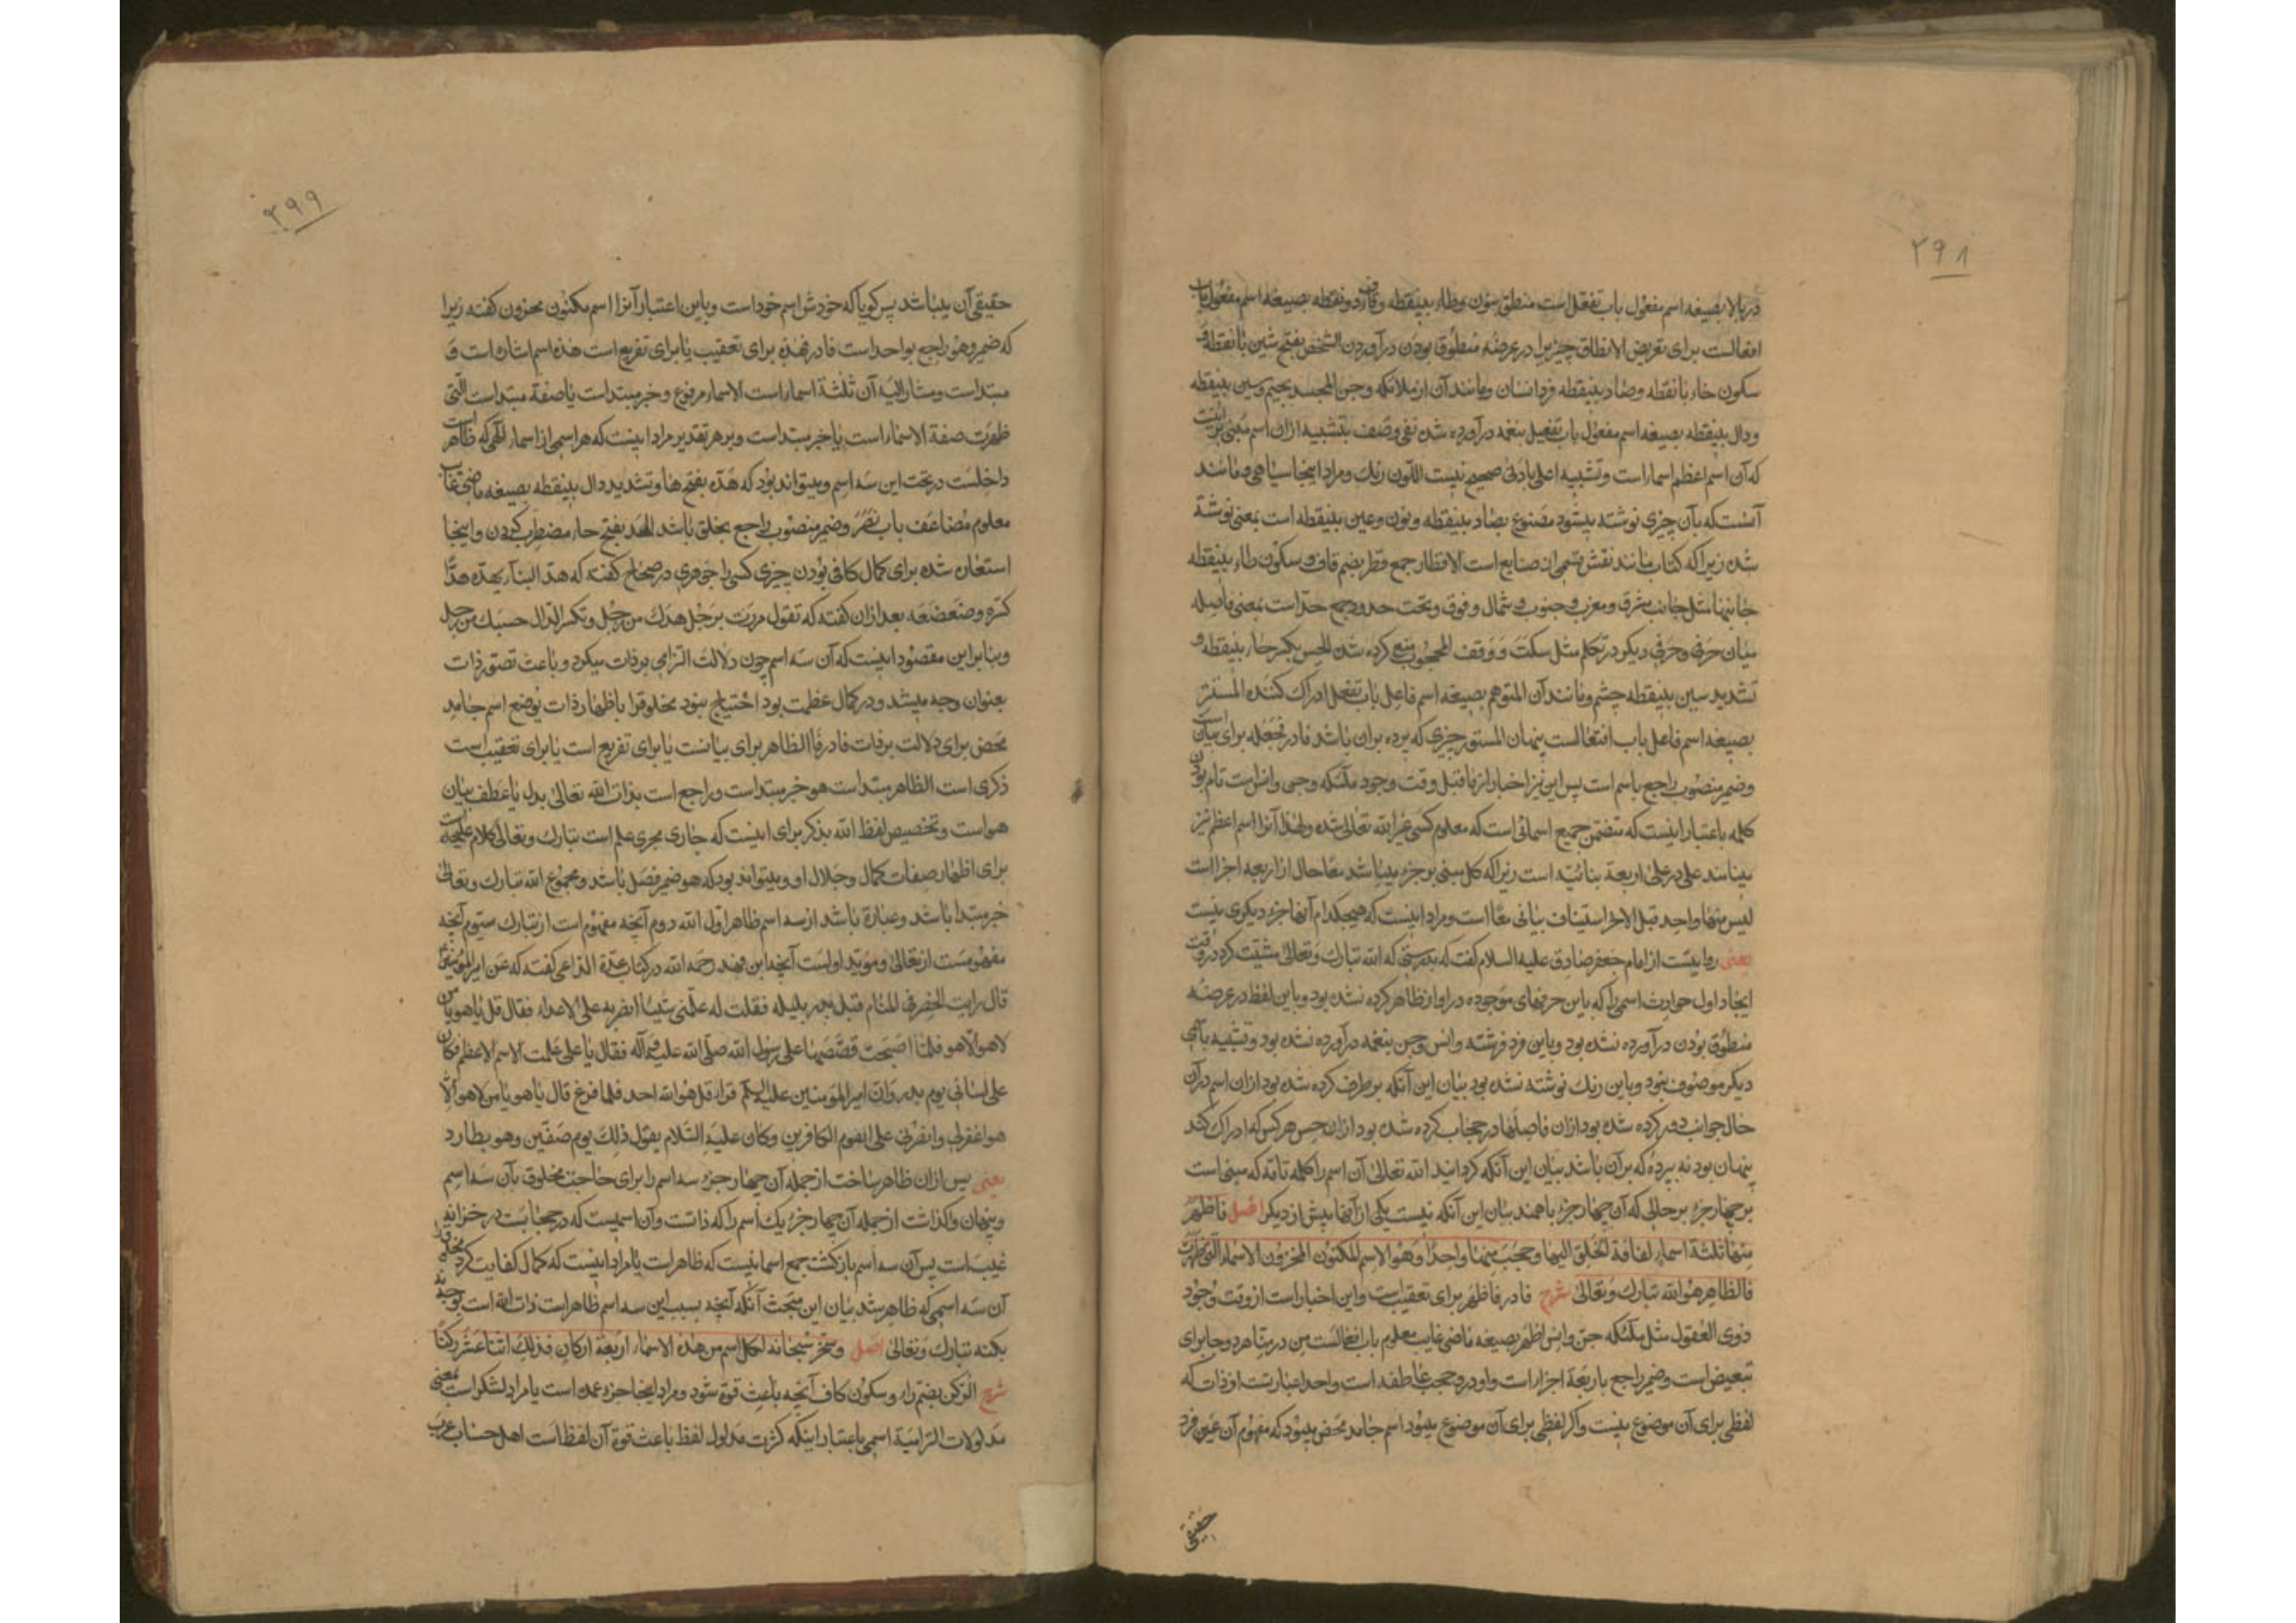 ۲۹۸
در بالا بصیغه اسم مفعول باب تفعل است منطق بنون وطاء بینقطه وقاف دونقطه بصیغه اسم مفعول باب
افعالست برای تعریض الانطاق چیزیرا در عرضه منطوق بودن در آوردن الشخص بفتح شین بانقطه و
سکون خاء بانقطه وصاد بینقطه فرد انسان ومانند آن از ملائکه وجن المجسد بجیم وسین بینقطه
ودال بینقطه بصیغه اسم مفعول باب تفعیل بنغمه درآورده شدن نفی وصف بتشبیه ازان اسم مبنی براینست
که آن اسم اعظم اسماراست وتشبیه اعلی بادنی صحیح نیست اللون رنك ومراد اینجا سیاهی ومانند
آنست که بآن چیزی نوشته میشود مصنوع بصاد بینقطه ونون وعین بینقطه است بمعنی نوشته
شده زیرا که کتاب مانند نقش قسمی از صنایع است الاقطار جمع قطر بضم قاف وسکون طاء بینقطه
جانبها مثل جانب مشرق ومغرب وجنوب وشمال وفوق وتحت حدود جمع حدّ است بمعنی فاصله
میان حرفی وحرفی دیگر در تکلم مثل سکت ووقف المحجوب منع کرده شده الحس بکسر حاء بینقطه و
تشدید سین بینقطه چشم ومانند آن المتوهم بصیغه اسم فاعل باب تفعل ادراك کننده المستتر
بصیغه اسم فاعل باب افتعالست پنهان المستور چیزی که پرده بران باشد فا در فجعله برای بیان است
وضمیر منصوب راجع باسم است پس این نیز اخبار از ماقبل وقت وجود ملئکه وجن وانس است تام بودن
کلمه باعتبار اینست که متضمن جمیع اسمائی است که معلوم کسی غیر الله تعالی شده ولهذا آنرا اسم اعظم نیز
مینامند علی در علی اربعة بنائیّه است زیرا که کل مبنی بر جزء میباشد معاً حال از اربعه اجزا است
لیس منها واحد قبل الاخر استیناف بیانی معاً است ومراد اینست که هیچکدام آنها جزء دیگری نیست
یعنی روایتست از امام جعفر صادق علیه السلام گفت که بدرستی که الله تبارك وتعالی مشیّت کرد در وقت
ایجاد اول حوادث اسمی را که باین حرفهای موجوده در اواز ظاهر کرده نشده بود وباین لفظ در عرضه
منطوق بودن درآورده نشده بود وباین فرد فرشته وانس وجن بنغمه درآورده نشده بود وتشبیه باسمی
دیگر موصوف نبود وباین رنك نوشته نشده بود بیان این آنکه برطرف کرده شده بود ازان اسم در آن
حال جوانب دور کرده شده بود ازان فاصلها در حجاب کرده شده بود ازان حس هر کس که ادراك کند
پنهان بود نه بپرده که بر آن باشد بیان این آنکه گردانید الله تعالی آن اسم را کلمه تامّه که مبنی است
بر چهار جزء بر حالی که آن چهار جزء باهمند بیان این آنکه نیست یکی از آنها پیش از دیگر اصل فاظهر
منها ثلثة اسماء لفاقة الخلق الیها وحجب منها واحداً وهو الاسم المکنون المخزون الاسماء التی ظهرت
فالظاهر هو الله تبارك وتعالی شرح فا در فاظهر برای تعقیب است واین اخبار است از وقت وجود
ذوی العقول مثل ملئکه جن وانس اظهر بصیغه ماضی غایب معلوم باب افعالست من در منها هر دو جا برای
تبعیض است وضمیر راجع باربعة اجزاء است واو در وحجب عاطفه است واحد عبارتست از ذات که
لفظی برای آن موضوع نیست واگر لفظی برای آن موضوع میبود اسم جامد محض میبود که مفهوم آن عین فرد
حقیقی
۲۹۹
حقیقی آن میباشد پس گویا که خودش اسم خود است وباین اعتبار آنرا اسم مکنون مخزون گفته زیرا
که ضمیر وهو راجع بواحد است فا در فهذه برای تعقیب یا برای تفریع است هذه اسم اشاره است و
مبتداست ومشار الیه آن ثلثة اسماء است الاسماء مرفوع وخبر مبتداست یا صفة مبتداست التی
ظهرت صفة الاسماء است یا خبر مبتداست وبر هر تقدیر مراد اینست که هر اسمی از اسماء الهی که ظاهر است
داخلست در تحت این سه اسم ومیتواند بود که هدّه بفتح ها وتشدید دال بینقطه بصیغه ماضی غایب
معلوم مضاعف باب نصر وضمیر منصوب راجع بخلق باشد الهد بفتح هاء مضطرب کردن واینجا
استعاره شده برای کمال کافی بودن چیزی کسی را جوهری در صحاح گفته که هدّ البناء یهدّه هدّاً
کسره وضعضعه بعد ازان گفته که تقول مررت برجل هدك من رجل وتکسر الدال حسبك من رجل
وبنابراین مقصود اینست که آن سه اسم چون دلالت التزامی بر ذات میکرد وباعث تصور ذات
بعنوان وجه میشد ودر کمال عظمت بود احتیاج نبود مخلوق را باظهار ذات بوضع اسم جامد
محض برای دلالت بر ذات فا در فالظاهر برای بیانست یا برای تفریع است یا برای تعقیب است
ذکری است الظاهر مبتداست هو خبر مبتداست وراجع است بذات الله تعالی بدل یا عطف بیان
هو است وتخصیص لفظ الله بذکر برای اینست که جاری مجری علم است تبارك وتعالی کلام علیحده است
برای اظهار صفات کمال وجلال او ومیتواند بود که هو ضمیر فصل باشد ومجموع الله تبارك وتعالی
خبر مبتدا باشد وعبارة باشد از سه اسم ظاهر اول الله دوم آنچه مفهوم است از تبارك سیّوم آنچه
مفهومست از تعالی ومؤیّد اولست آنچه ابن فهد رحمه الله در کتاب عدة الداعی گفته که عن امیر المؤمنین ع
قال رایت الخضر فی المنام قبل بدر بلیله فقلت له علّمنی شیئا انصر به علی الاعداء فقال قل یا هو یا من
لا هو الا هو فلما اصبحت قصصتها علی رسول الله صلّی الله علیه وآله فقال یا علی علمت الاسم الاعظم فکان
علی لسانی یوم بدر وان امیر المؤمنین علیه السلام قرا قل هو الله احد فلما فرغ قال یا هو یا من لا هو الا
هو اغفرلی وانصرنی علی القوم الکافرین وکان علیه السّلام یقول ذلك یوم صفّین وهو یطارد
یعنی پس ازان ظاهر ساخت از جمله آن چهار جزء سه اسم را برای حاجت مخلوق بآن سه اسم
وپنهان واگذاشت از جمله آن چهار جزء یك اسم را که ذاتست وآن اسمیست که در حجابست در خزانه
غیب است پس آن سه اسم بازگشت جمع اسمائیست که ظاهر است یا مراد اینست که کمال کفایت کرد
آن سه اسمی که ظاهر شد بیان این مبحث آنکه آنچه بسبب این سه اسم ظاهر است ذات الله است
بکنه تبارك وتعالی اصل وسخّر سبحانه لکل اسم من هذه الاسماء اربعة ارکان فذلك اثنا عشر رکناً
شرح الرکن بضم راء وسکون کاف آنچه باعث قوة شود ومراد اینجا جزء عمده است یا مراد لشکر است بمعنی
مدلولات التزامیّه اسمی باعتبار اینکه کثرت مدلول لفظ باعث قوة آن لفظ است اهل حساب عرب